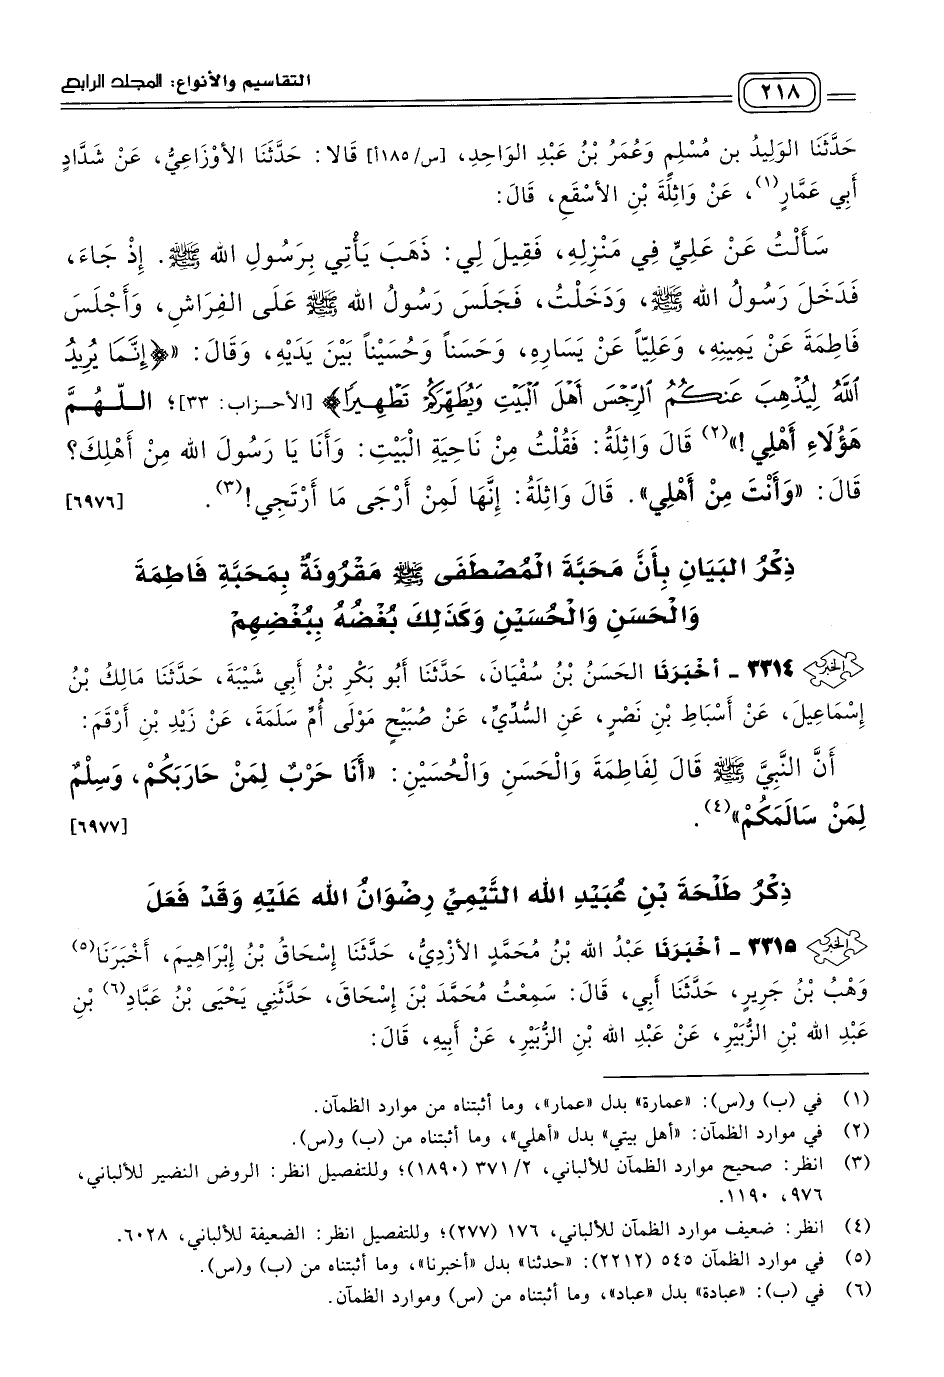 التقاسيم والأنواع: المجلد الرابع
٢١٨
حَدَّثَنَا الوَلِيدُ بن مُسْلِمٍ وَعُمَرُ بْنُ عَبْدِ الوَاحِدِ، [س/١٨٥أ] قَالا: حَدَّثَنَا الأوْزَاعِيُّ، عَنْ شَدَّادٍ
أَبِي عَمَّارٍ(١)، عَنْ وَاثِلَةَ بْنِ الأسْقَعِ، قَالَ:
سَأَلْتُ عَنْ عَلِيٍّ فِي مَنْزِلِهِ، فَقِيلَ لِي: ذَهَبَ يَأْتِي بِرَسُولِ الله ﷺ. إِذْ جَاءَ،
فَدَخَلَ رَسُولُ الله ﷺ، وَدَخَلْتُ، فَجَلَسَ رَسُولُ الله ﷺ عَلَى الفِرَاشِ، وَأَجْلَسَ
فَاطِمَةَ عَنْ يَمِينِهِ، وَعَلِيّاً عَنْ يَسَارِهِ، وَحَسَناً وَحُسَيْناً بَيْنَ يَدَيْهِ، وَقَالَ: «﴿إِنَّمَا يُرِيدُ
ٱللَّهُ لِيُذْهِبَ عَنكُمُ ٱلرِّجْسَ أَهْلَ ٱلْبَيْتِ وَيُطَهِّرَكُمْ تَطْهِيرًا﴾ [الأحزاب: ٣٣]؛ اللّهُمَّ
هَؤُلَاءِ أَهْلِي!»(٢) قَالَ وَاثِلَةُ: فَقُلْتُ مِنْ نَاحِيَةِ الْبَيْتِ: وَأَنَا يَا رَسُولَ الله مِنْ أَهْلِكَ؟
قَالَ: «وَأَنْتَ مِنْ أَهْلِي». قَالَ وَاثِلَةُ: إِنَّهَا لَمِنْ أَرْجَى مَا أَرْتَجِي!(٣). [٦٩٧٦]
ذِكْرُ البَيَانِ بِأَنَّ مَحَبَّةَ الْمُصْطَفَى ﷺ مَقْرُونَةٌ بِمَحَبَّةِ فَاطِمَةَ
وَالْحَسَنِ وَالْحُسَيْنِ وَكَذَلِكَ بُغْضُهُ بِبُغْضِهِمْ
الخبر ٣٣١٤ - أخْبَرَنَا الحَسَنُ بْنُ سُفْيَانَ، حَدَّثَنَا أَبُو بَكْرِ بْنُ أَبِي شَيْبَةَ، حَدَّثَنَا مَالِكُ بْنُ
إِسْمَاعِيلَ، عَنْ أَسْبَاطِ بْنِ نَصْرٍ، عَنِ السُّدِّيِّ، عَنْ صُبَيْحٍ مَوْلَى أُمِّ سَلَمَةَ، عَنْ زَيْدِ بْنِ أَرْقَمَ:
أَنَّ النَّبِيَّ ﷺ قَالَ لِفَاطِمَةَ وَالْحَسَنِ وَالْحُسَيْنِ: «أَنَا حَرْبٌ لِمَنْ حَارَبَكُمْ، وَسِلْمٌ
لِمَنْ سَالَمَكُمْ»(٤). [٦٩٧٧]
ذِكْرُ طَلْحَةَ بْنِ عُبَيْدِ الله التَّيْمِيِّ رِضْوَانُ الله عَلَيْهِ وَقَدْ فَعَلَ
الخبر ٣٣١٥ - أخْبَرَنَا عَبْدُ الله بْنُ مُحَمَّدٍ الأزْدِيُّ، حَدَّثَنَا إِسْحَاقُ بْنُ إِبْرَاهِيمَ، أَخْبَرَنَا(٥)
وَهْبُ بْنُ جَرِيرٍ، حَدَّثَنَا أَبِي، قَالَ: سَمِعْتُ مُحَمَّدَ بْنَ إِسْحَاقَ، حَدَّثَنِي يَحْيَى بْنُ عَبَّادِ(٦) بْنِ
عَبْدِ الله بْنِ الزُّبَيْرِ، عَنْ عَبْدِ الله بْنِ الزُّبَيْرِ، عَنْ أَبِيهِ، قَالَ:
(١) في (ب) و(س): «عمارة» بدل «عمار»، وما أثبتناه من موارد الظمآن.
(٢) في موارد الظمآن: «أهل بيتي» بدل «أهلي»، وما أثبتناه من (ب) و(س).
(٣) انظر: صحيح موارد الظمآن للألباني، ٢/ ٣٧١ (١٨٩٠)؛ وللتفصيل انظر: الروض النضير للألباني،
٩٧٦، ١١٩٠.
(٤) انظر: ضعيف موارد الظمآن للألباني، ١٧٦ (٢٧٧)؛ وللتفصيل انظر: الضعيفة للألباني، ٦٠٢٨.
(٥) في موارد الظمآن ٥٤٥ (٢٢١٢): «حدثنا» بدل «أخبرنا»، وما أثبتناه من (ب) و(س).
(٦) في (ب): «عبادة» بدل «عباد»، وما أثبتناه من (س) وموارد الظمآن.